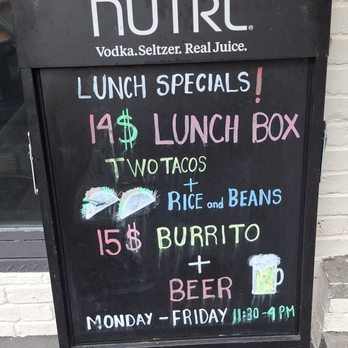 NUTRL®
Vodka. Seltzer. Real Juice.
LUNCH SPECIALS!
14$ LUNCH BOX
TWO TACOS
+
RICE and BEANS
15$ BURRITO
+
BEER
MONDAY - FRIDAY 11:30-4 PM